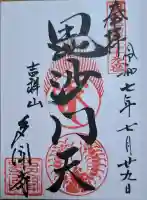 奉拝
令和七年七月廿九日
毘沙門天
吉祥山
多聞寺